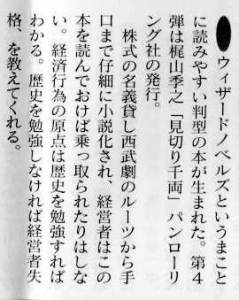 ●ウィザードノベルズというまこと
に読みやすい判型の本が生まれた。第4
弾は梶山季之「見切り千両」パンローリ
ング社の発行。
株式の名義貸し西武劇のルーツから手
口まで仔細に小説化され、経営者はこの
本を読んでおけば乗っ取られたりはしな
い。経済行為の原点は歴史を勉強すれば
わかる。歴史を勉強しなければ経営者失
格、を教えてくれる。